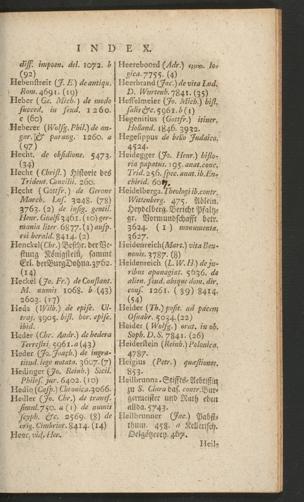 INDEX.
diss. imponen. del. 1072. b
(92)
Hebenstreit (J. E.) de antiqu.
Rom. 4691. (19)
Heber (Ge. Mich.) de modo
succed. in feud. 1260.
c (60)
Heberer (Wolfg. Phil.) de an-
gar. & parang. 1260. a
(97)
Hecht. de obsidione. 5473.
(34)
Hecht (Christ.) Historie des
Trident. Concilii. 260.
Hecht (Gottfr.) de Gerone
March. Lus. 3248. (78)
3763. (2) de insig. gentil.
3461. (10) ger-
mania liter. 6877. (1) 
 8414. (2)
Henckel (Chr.) Beschr. der Ve-
stung Königstein, sammt
3762.
(14)
Heckel (Jo. Fr.) de Constant.
M. numis 1068. b (43)
2603. (17)
Heda (Wilh.) de episc. Ul-
traj. 3905. hist. hor. episc.
ibid.
Heder (Chr. Aadr.) de hedera
Terrestri. 5961. a (43)
Heder (Jo. Joach.) de ingra-
titud. lege notata. 3607. (7)
Hedinger (Jo. Reinh.) Sicil.
Philos. jur. 6402. (10)
Hedio (Casp.) Chronica. 3066.
Heiller (Jo. Chr.) de transf.
750. a (1) de numis
scyph. &c. 2569. (8) de
orig. Cimbriar. 8414. (14)
Heer, vid. Her.
Heereboord (Adr.) 
gica. 7755. (4)
Heerbrand (Jac.) de vita Lud.
D. Wurtenb. 7841. (35)
Hesselmeier (Jo. Mich.) hist.
salis &c. 5961. b (1)
Hegenitius (Gottfr.) itiner.
Holland. 1846. 3932.
Hegesippus de bello Judaico.
4524.
Heidegger (Jo. Henr.) histo-
ria papatus. 195. anat. conc.
Trid. 256. spec. anat. ib. En-
chirid. 607.
Heidelberga. Theologi ib. contr.
Wittenberg. 475. 
Heydelberg. Bericht Pfaltz-
gr. Vormundschafft betr.
3624. (1) monumenta.
3627.
Heidenreich (Marc.) vita Bau-
nonis. 3787. (8)
Heidenreich (L. W. H.) de ju-
ribus apanagiat. 5636. de
alien. feud. absque dom. dir.
cons. 1261. (39) 8414.
(54)
Heider (Th.) postr. ad pacem
Osnabr. 5034. (22)
Heider (Wolfg.) orat. in ob.
Soph. D. S. 7841. (26)
Heiderstein (Reinh.) Polonica.
4787.
Heigius (Petr.) quæstiones.
853.
Heilbrunna. Stiffts-Aebtissin
zu S. Clara das. contr. Bur-
germeister und Rath eben
allda. 5743.
Heilbrunner (Jac.) Pabst-
thum. 458. a Kellerisch.
467.
Heils